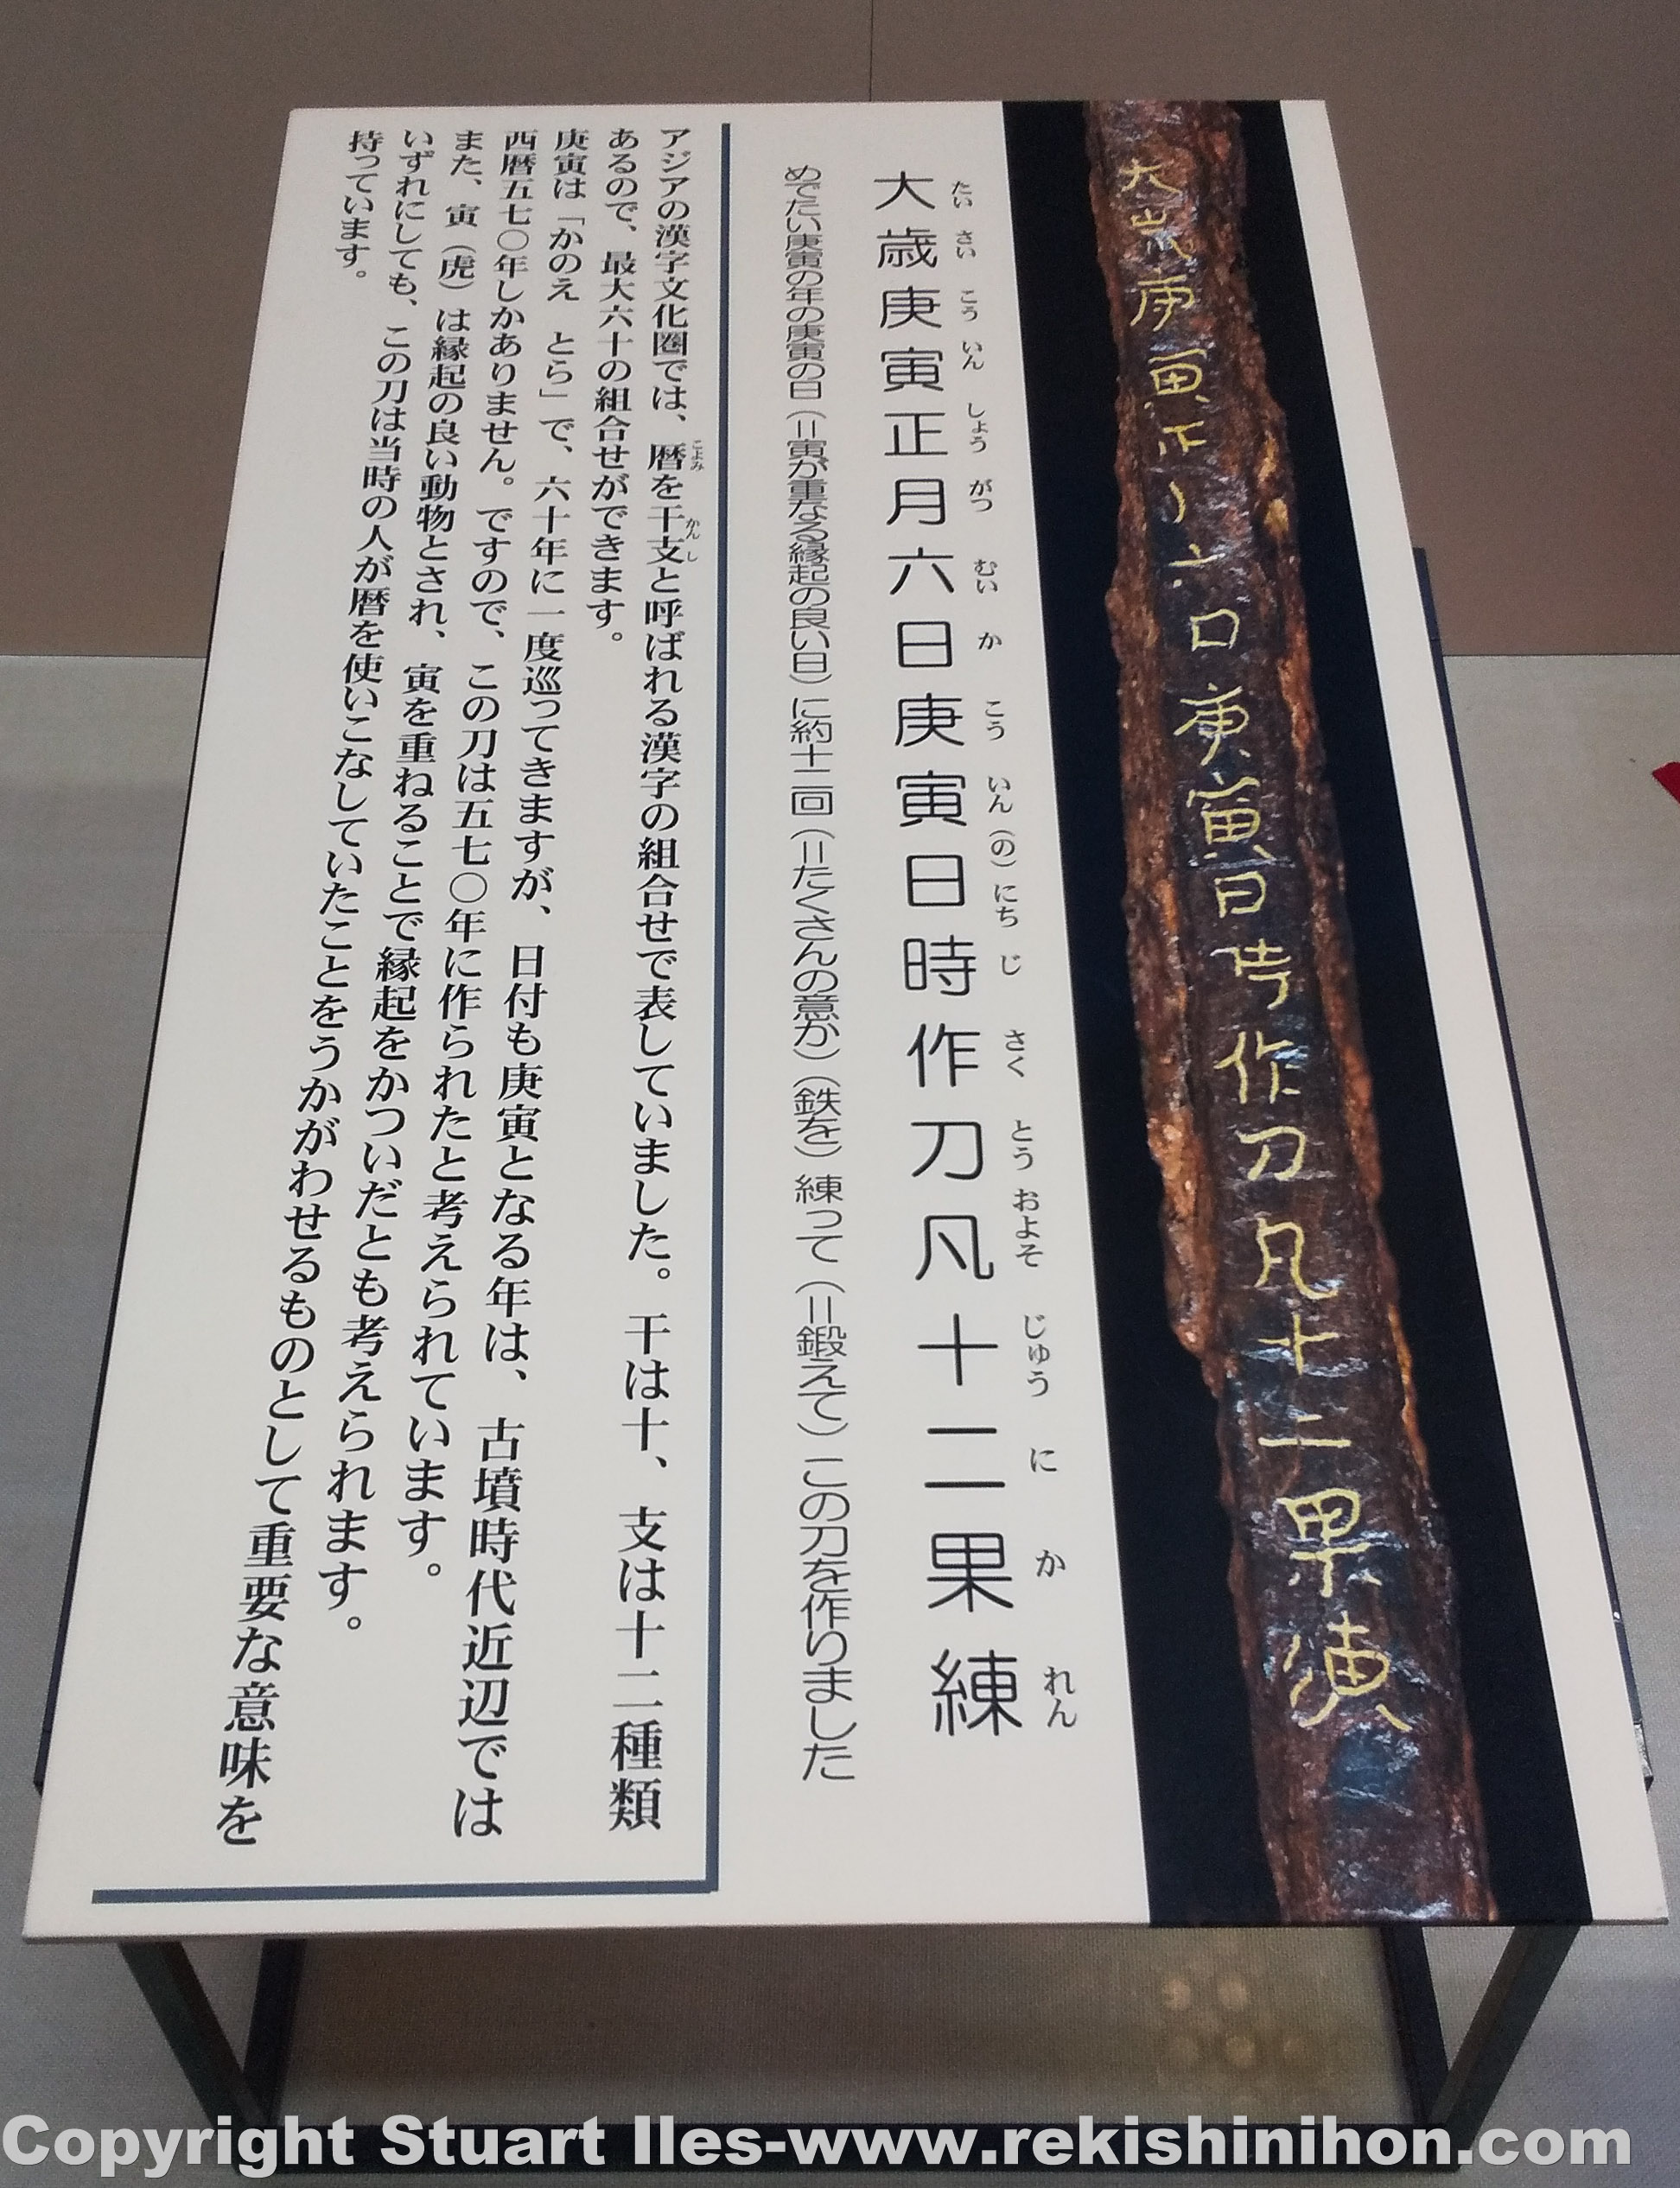 大歳庚寅正月六日庚寅日時作刀凡十二果練
大歳庚寅正月六日庚寅日時作刀凡十二果練
たい さい こう いん しょう がつ むい か こう いん (の) にち じ さく とう およそ じゅう に か れん
めでたい庚寅の年の庚寅の日（=寅が重なる縁起の良い日）に約十二回（=たくさんの意か）（鉄を）練って（=鍛えて）この刀を作りました
アジアの漢字文化圏では、暦を干支と呼ばれる漢字の組合せで表していました。干は十、支は十二種類
こよみ かんし
あるので、最大六十の組合せができます。
庚寅は「かのえ とら」で、六十年に一度巡ってきますが、日付も庚寅となる年は、古墳時代近辺では
西暦五七〇年しかありません。ですので、この刀は五七〇年に作られたと考えられています。
また、寅（虎）は縁起の良い動物とされ、寅を重ねることで縁起をかついだとも考えられます。
いずれにしても、この刀は当時の人が暦を使いこなしていたことをうかがわせるものとして重要な意味を
持っています。
Copyright Stuart Iles-www.rekishinihon.com